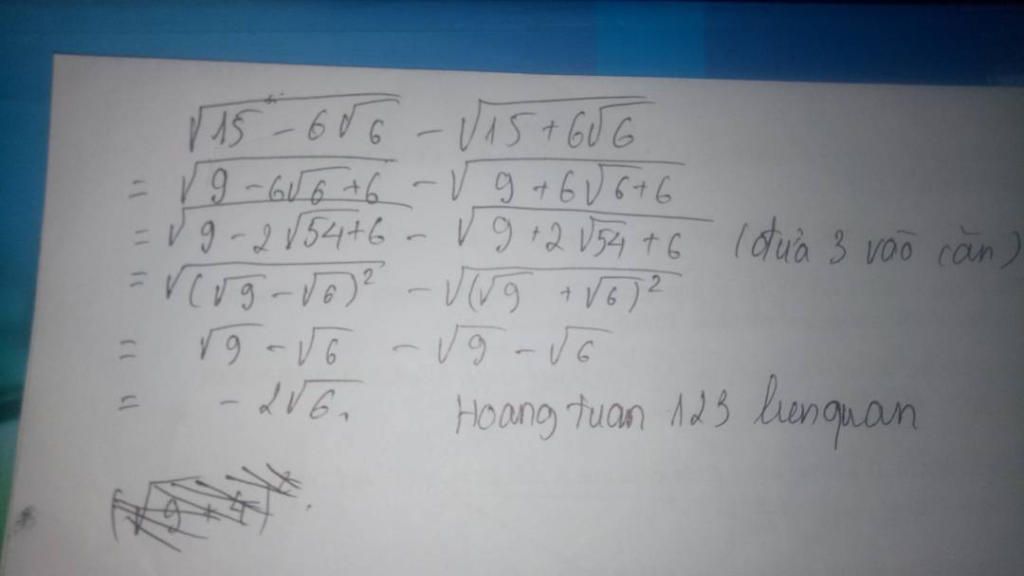 √(15 - 6√6) - √(15 + 6√6)
= √(9 - 6√6 + 6) - √(9 + 6√6 + 6)
= √(9 - 2√54 + 6) - √(9 + 2√54 + 6) (đưa 3 vào căn)
= √((√9 - √6)²) - √((√9 + √6)²)
= √9 - √6 - √9 - √6
= - 2√6. Hoang tuan 123 lienquan